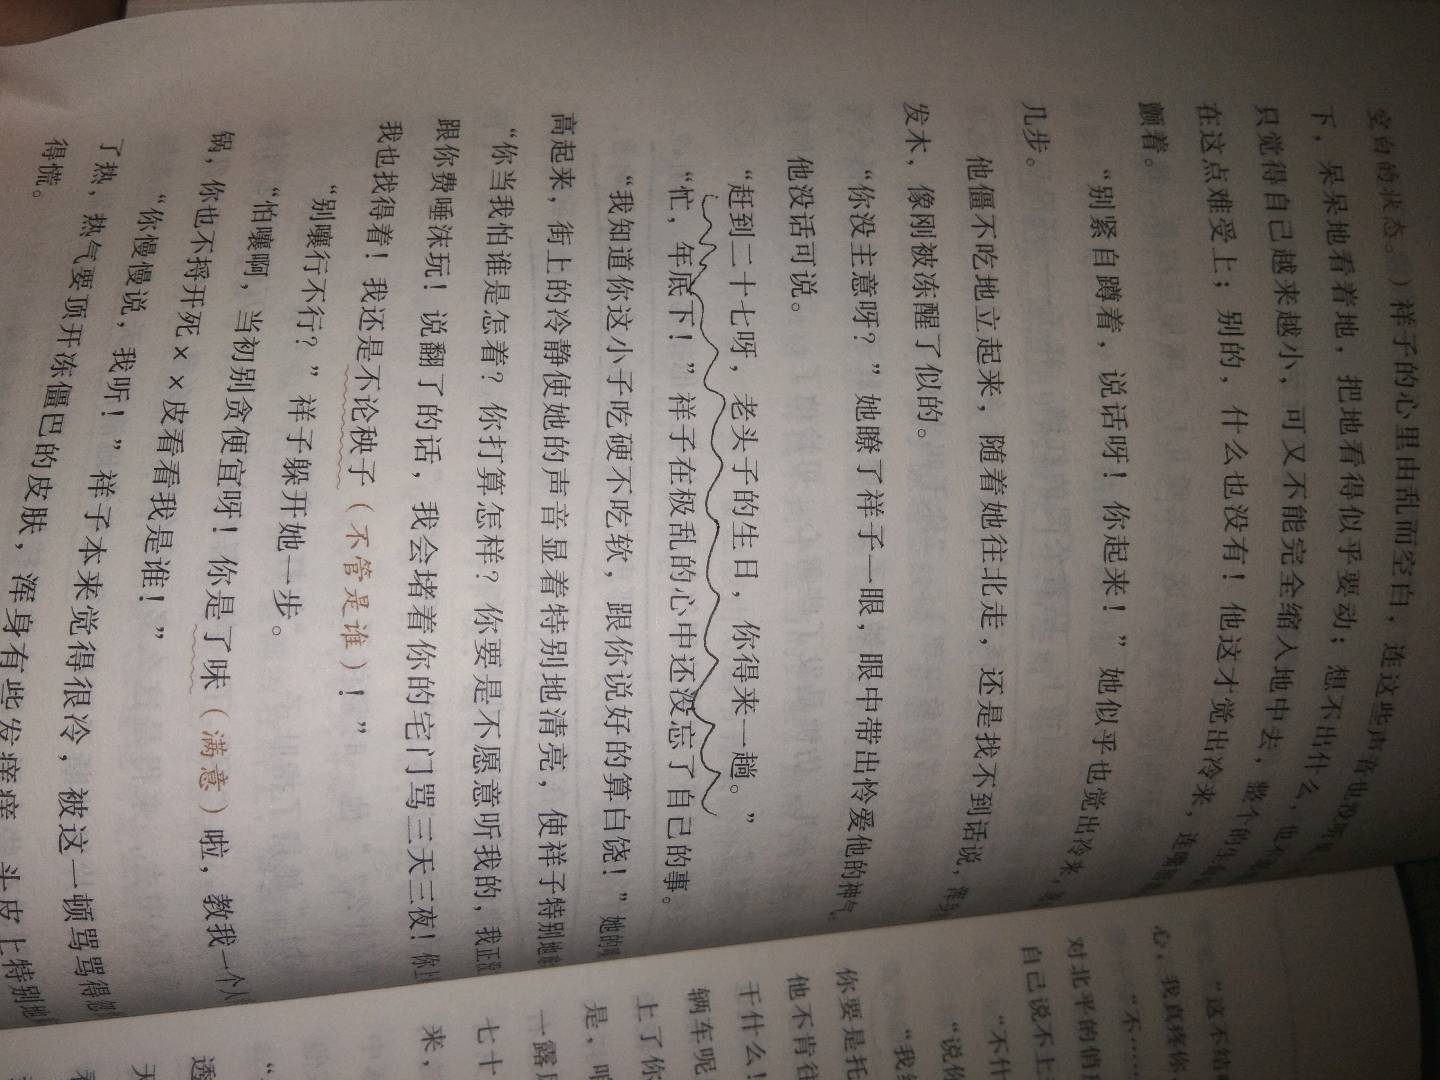 空白的状态。）祥子的心里由乱而空白，连这些声音也没听
下，呆呆地看着地，把地看得似乎要动；想不出什么，也
只觉得自己越来越小，可又不能完全缩入地中去，整个的生
在这点难受上；别的，什么也没有！他这才觉出冷来，连
颤着。
“别紧自蹲着，说话呀！你起来！”她似乎也觉出冷来，
几步。
他僵不吃地立起来，随着她往北走，还是找不到话说，
发木，像刚被冻醒了似的。
“你没主意呀？”她瞭了祥子一眼，眼中带出怜爱他的神气。
他没话可说。
“赶到二十七呀，老头子的生日，你得来一趟。”
“忙，年底下！”祥子在极乱的心中还没忘了自己的事。
“我知道你这小子吃硬不吃软，跟你说好的算白饶！”她的
高起来，街上的冷静使她的声音显着特别地清亮，使祥子特别地
“你当我怕谁是怎着？你打算怎样？你要是不愿意听我的，我正没
跟你费唾沫玩！说翻了的话，我会堵着你的宅门骂三天三夜！你上
我也找得着！我还是不论秧子（不管是谁）！”
“别嚷行不行？”祥子躲开她一步。
“怕嚷啊，当初别贪便宜呀！你是了味（满意）啦，教我一个人
锅，你也不捋开死××皮看看我是谁！”
“你慢慢说，我听！”祥子本来觉得很冷，被这一顿骂骂得
了热，热气要顶开冻僵巴的皮肤，浑身有些发痒痒，头皮上特别地
得慌。
“这不结
心，我真疼你
“不……
对北平的俏
自己说不上
“不什
“说你
“我
你要是托
他不肯往
干什么！
辆车呢
上了你
是，咱
一露
七十
来，
透
天